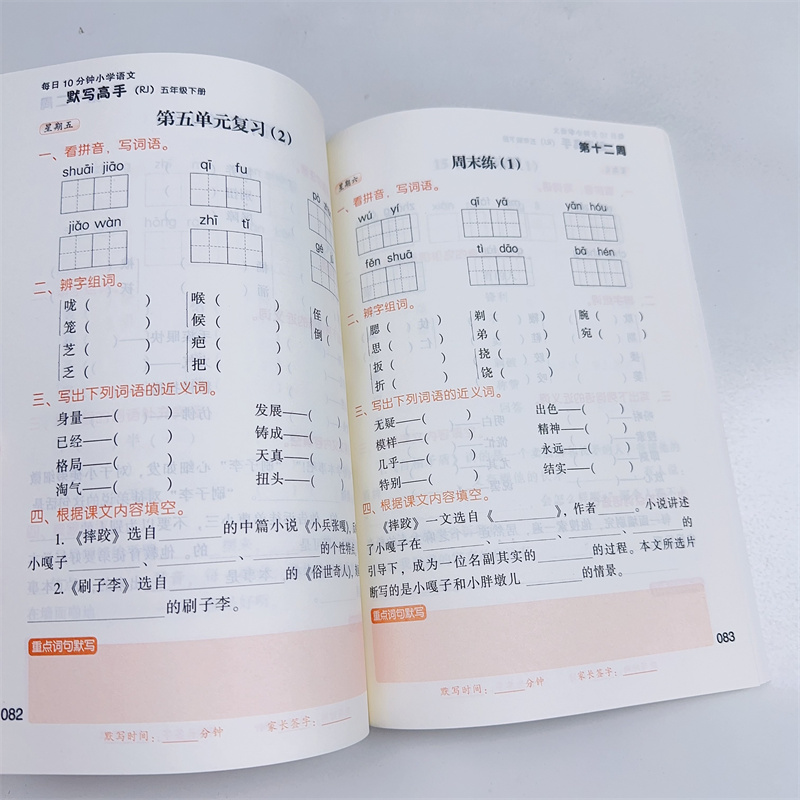 每日10分钟小学语文
默写高手(RJ)五年级下册
星期五
第五单元复习(2)
一、看拼音，写词语。
shuāi jiāo qī fu
jiǎo wàn zhī tǐ
二、辨字组词。
咙( ) 喉( ) 侄
笼( ) 候( ) 倒
芝( ) 疤( )
乏( ) 把( )
三、写出下列词语的近义词。
身量——( ) 发展——(
已经——( ) 铸成——(
格局——( ) 天真——(
淘气——( ) 扭头——(
四、根据课文内容填空。
1.《摔跤》选自______的中篇小说《小兵张嘎》,
小嘎子______、______、______的个性特
2.《刷子李》选自______的《俗世奇人》,
______的刷子李。
重点词句默写
082
默写时间：______分钟 家长签字：______
第十二周
星期六
周末练(1)
一、看拼音，写词语。
wú yí qī yā yān hóu
fěn shuā tì dāo bā hén
二、辨字组词。
腮( ) 剃( ) 腕( )
思( ) 弟( ) 宛( )
扳( ) 挠( )
折( ) 饶( )
三、写出下列词语的近义词。
无疑——( ) 出色——( )
模样——( ) 精神——( )
几乎——( ) 永远——( )
特别——( ) 结实——( )
四、根据课文内容填空。
《摔跤》一文选自《______》,作者______。小说讲述
了小嘎子在______、______、______的
引导下，成为一位名副其实的______的过程。本文所选片
断写的是小嘎子和小胖墩儿______的情景。
重点词句默写
083
默写时间：______分钟 家长签字：______